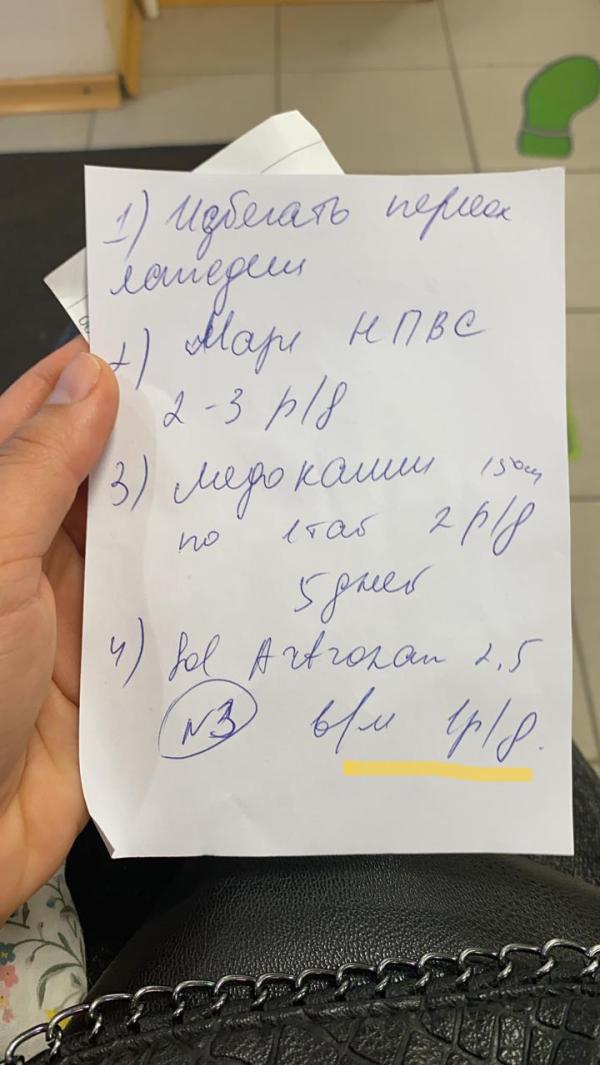 1) Избегать переох
лаждени
2) Мазь НПВС
2-3 р/д
3) Мидокалм 150мг
по 1таб 2 р/д
5 дней
4) Sol Artrozan 2,5
N3 в/м 1р/д.